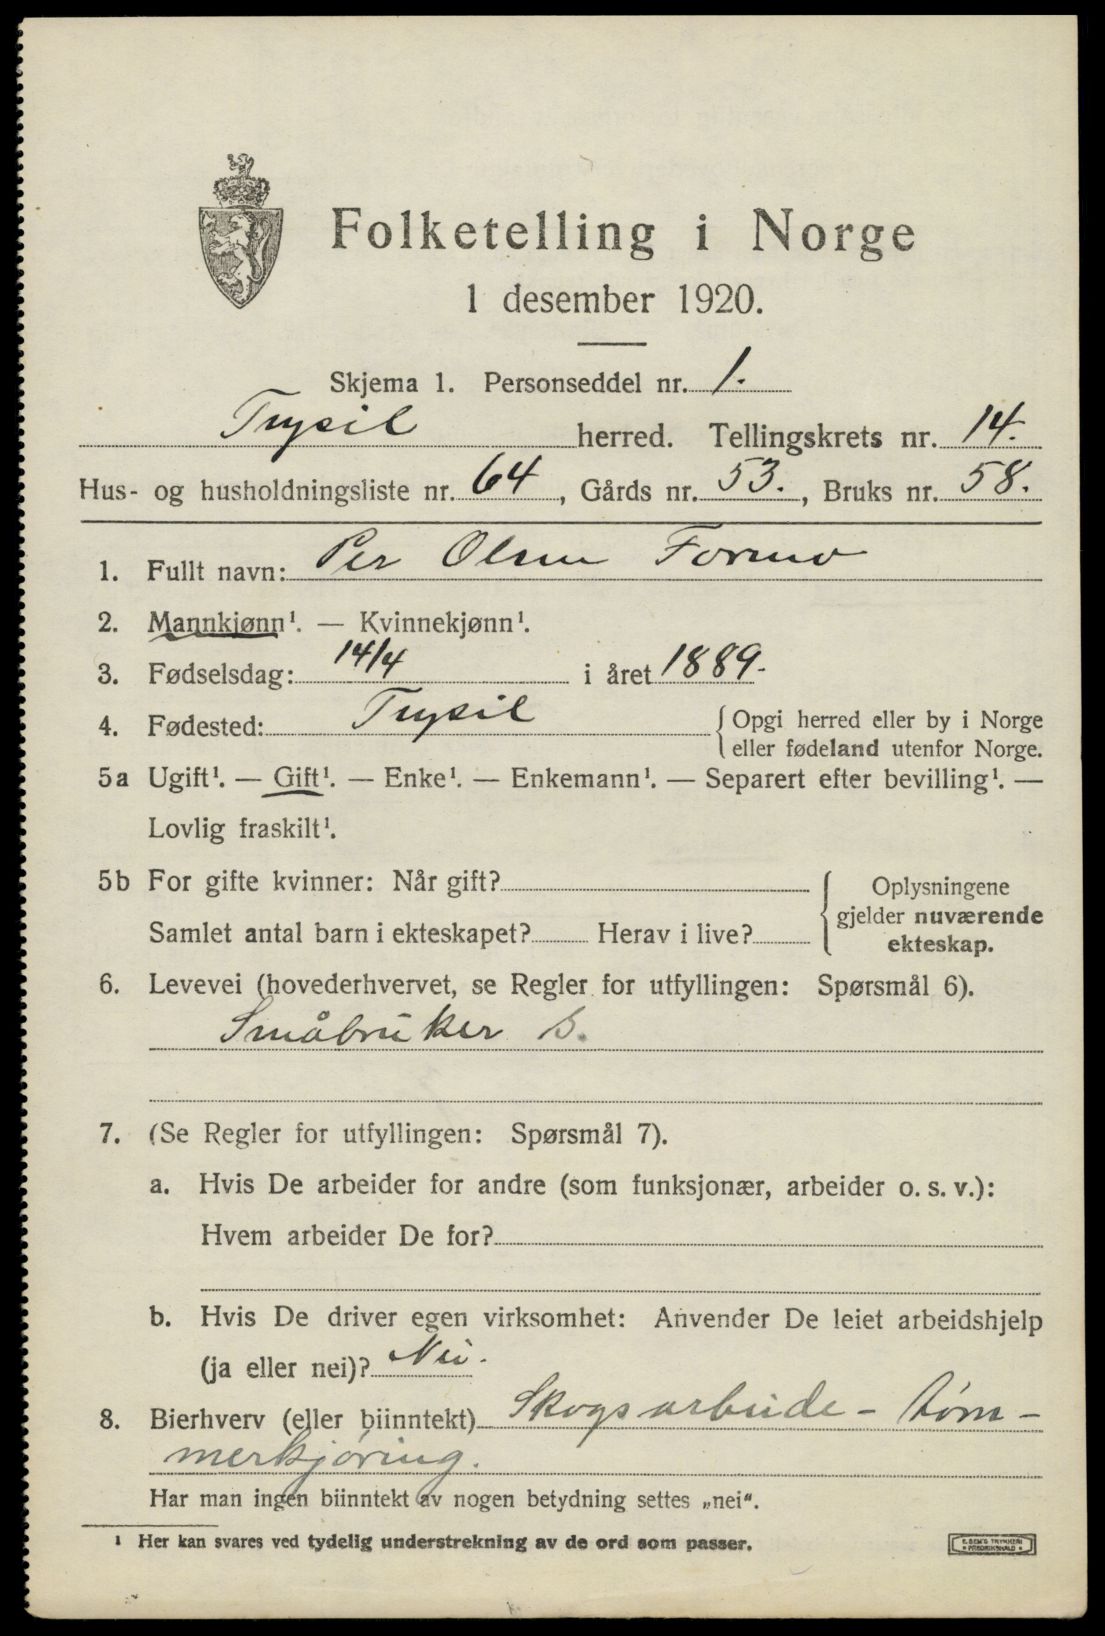 Folketelling i Norge
1 desember 1920.
Skjema 1. Personseddel nr. 1.
Trysil herred. Tellingskrets nr. 14.
Hus- og husholdningsliste nr. 64, Gårds nr. 53., Bruks nr. 58.
1. Fullt navn: Per Olsen Formo
2. Mannkjønn¹. — Kvinnekjønn¹.
3. Fødselsdag: 14/4 i året 1889.
4. Fødested: Trysil { Opgi herred eller by i Norge
eller fødeland utenfor Norge.
5a Ugift¹. — Gift¹. — Enke¹. — Enkemann¹. — Separert efter bevilling¹. —
Lovlig fraskilt¹.
5b For gifte kvinner: Når gift? { Oplysningene
gjelder nuværende
Samlet antal barn i ekteskapet? Herav i live?
ekteskap.
6. Levevei (hovederhvervet, se Regler for utfyllingen: Spørsmål 6).
Småbruker S.
7. (Se Regler for utfyllingen: Spørsmål 7).
a. Hvis De arbeider for andre (som funksjonær, arbeider o. s. v.):
Hvem arbeider De for?
b. Hvis De driver egen virksomhet: Anvender De leiet arbeidshjelp
(ja eller nei)? Nei.
8. Bierhverv (eller biinntekt) Skogsarbeide - tøm-
merkjøring.
Har man ingen biinntekt av nogen betydning settes „nei“.
¹ Her kan svares ved tydelig understrekning av de ord som passer.
E. SEM'S TRYKKERI
* FREDRIKSHALD *